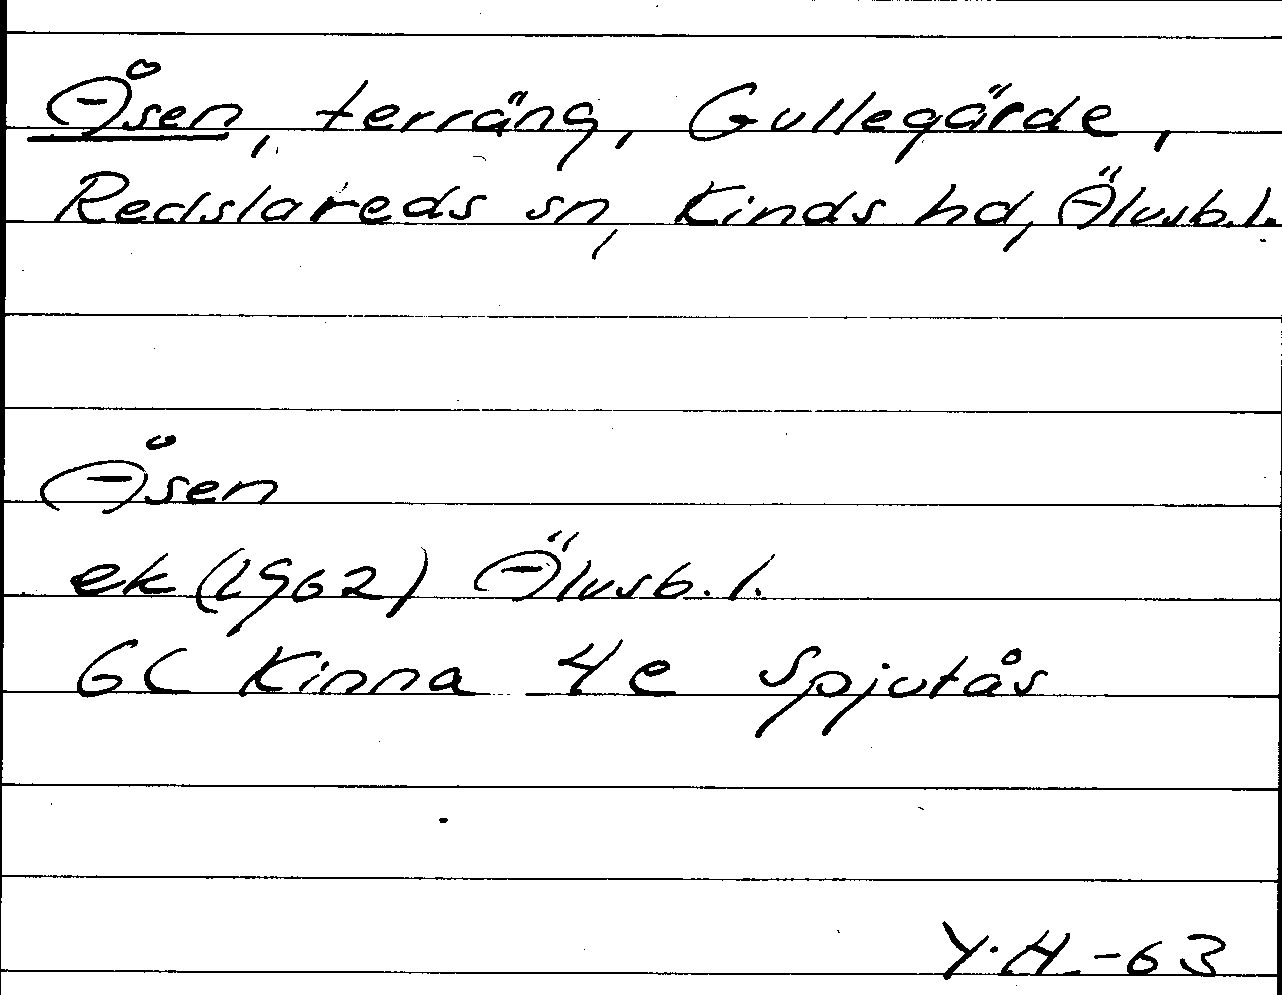 Åsen, terräng, Gullegärde,
Redslareds sn, Kinds hd, Älvsb.l.
Åsen
ek (1962) Älvsb.l.
6C Kinna 4e Spjutås
Y.H.-63